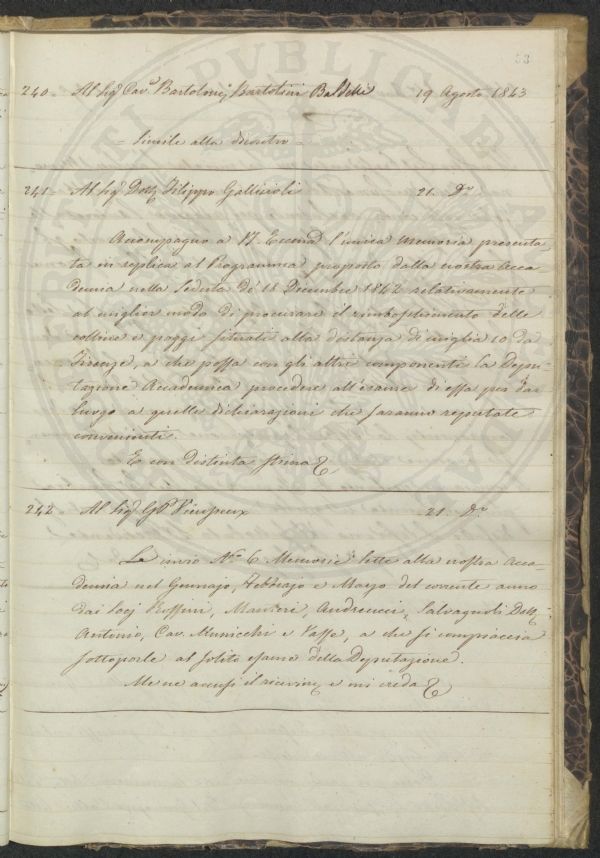 53
240 - Al Sigr. Cavr. Bartolomej Bartolini Baldelli 19 Agosto 1843
= Simile alla dicontro =
241 - Al Sigr. Dottr. Filippo Gallizioli 21. Do.
Accompagno a V. Eccenza l'unica Memoria presenta
ta in replica al Programma proposto dalla nostra Acca
demia nella Seduta de' 18 Dicembre 1842 relativamente
al miglior modo di procurare il rimboschimento delle
colline e poggi situati alla distanza di miglia 10 da
Firenze, a che possa con gli altri componenti la Depu-
tazione Accademica procedere all'esame di essa per dar
luogo a quelle dichiarazioni che saranno reputate
convenienti.
E con distinta stima &
242 Al Sigr. GP. Vieusseux 21. Do.
Le invio No. 6 Memorie lette alla nostra Acca-
demia nel Gennajo, Febbrajo e Marzo del corrente anno
dai Socj Buffini, Andreucci, Salvagnoli Dottr.
Antonio, Cav. e Taffe, a che si compiaccia
sottoporle al solito esame della Deputazione.
Me ne accusi il ricevere e mi creda &
PVBLICAE